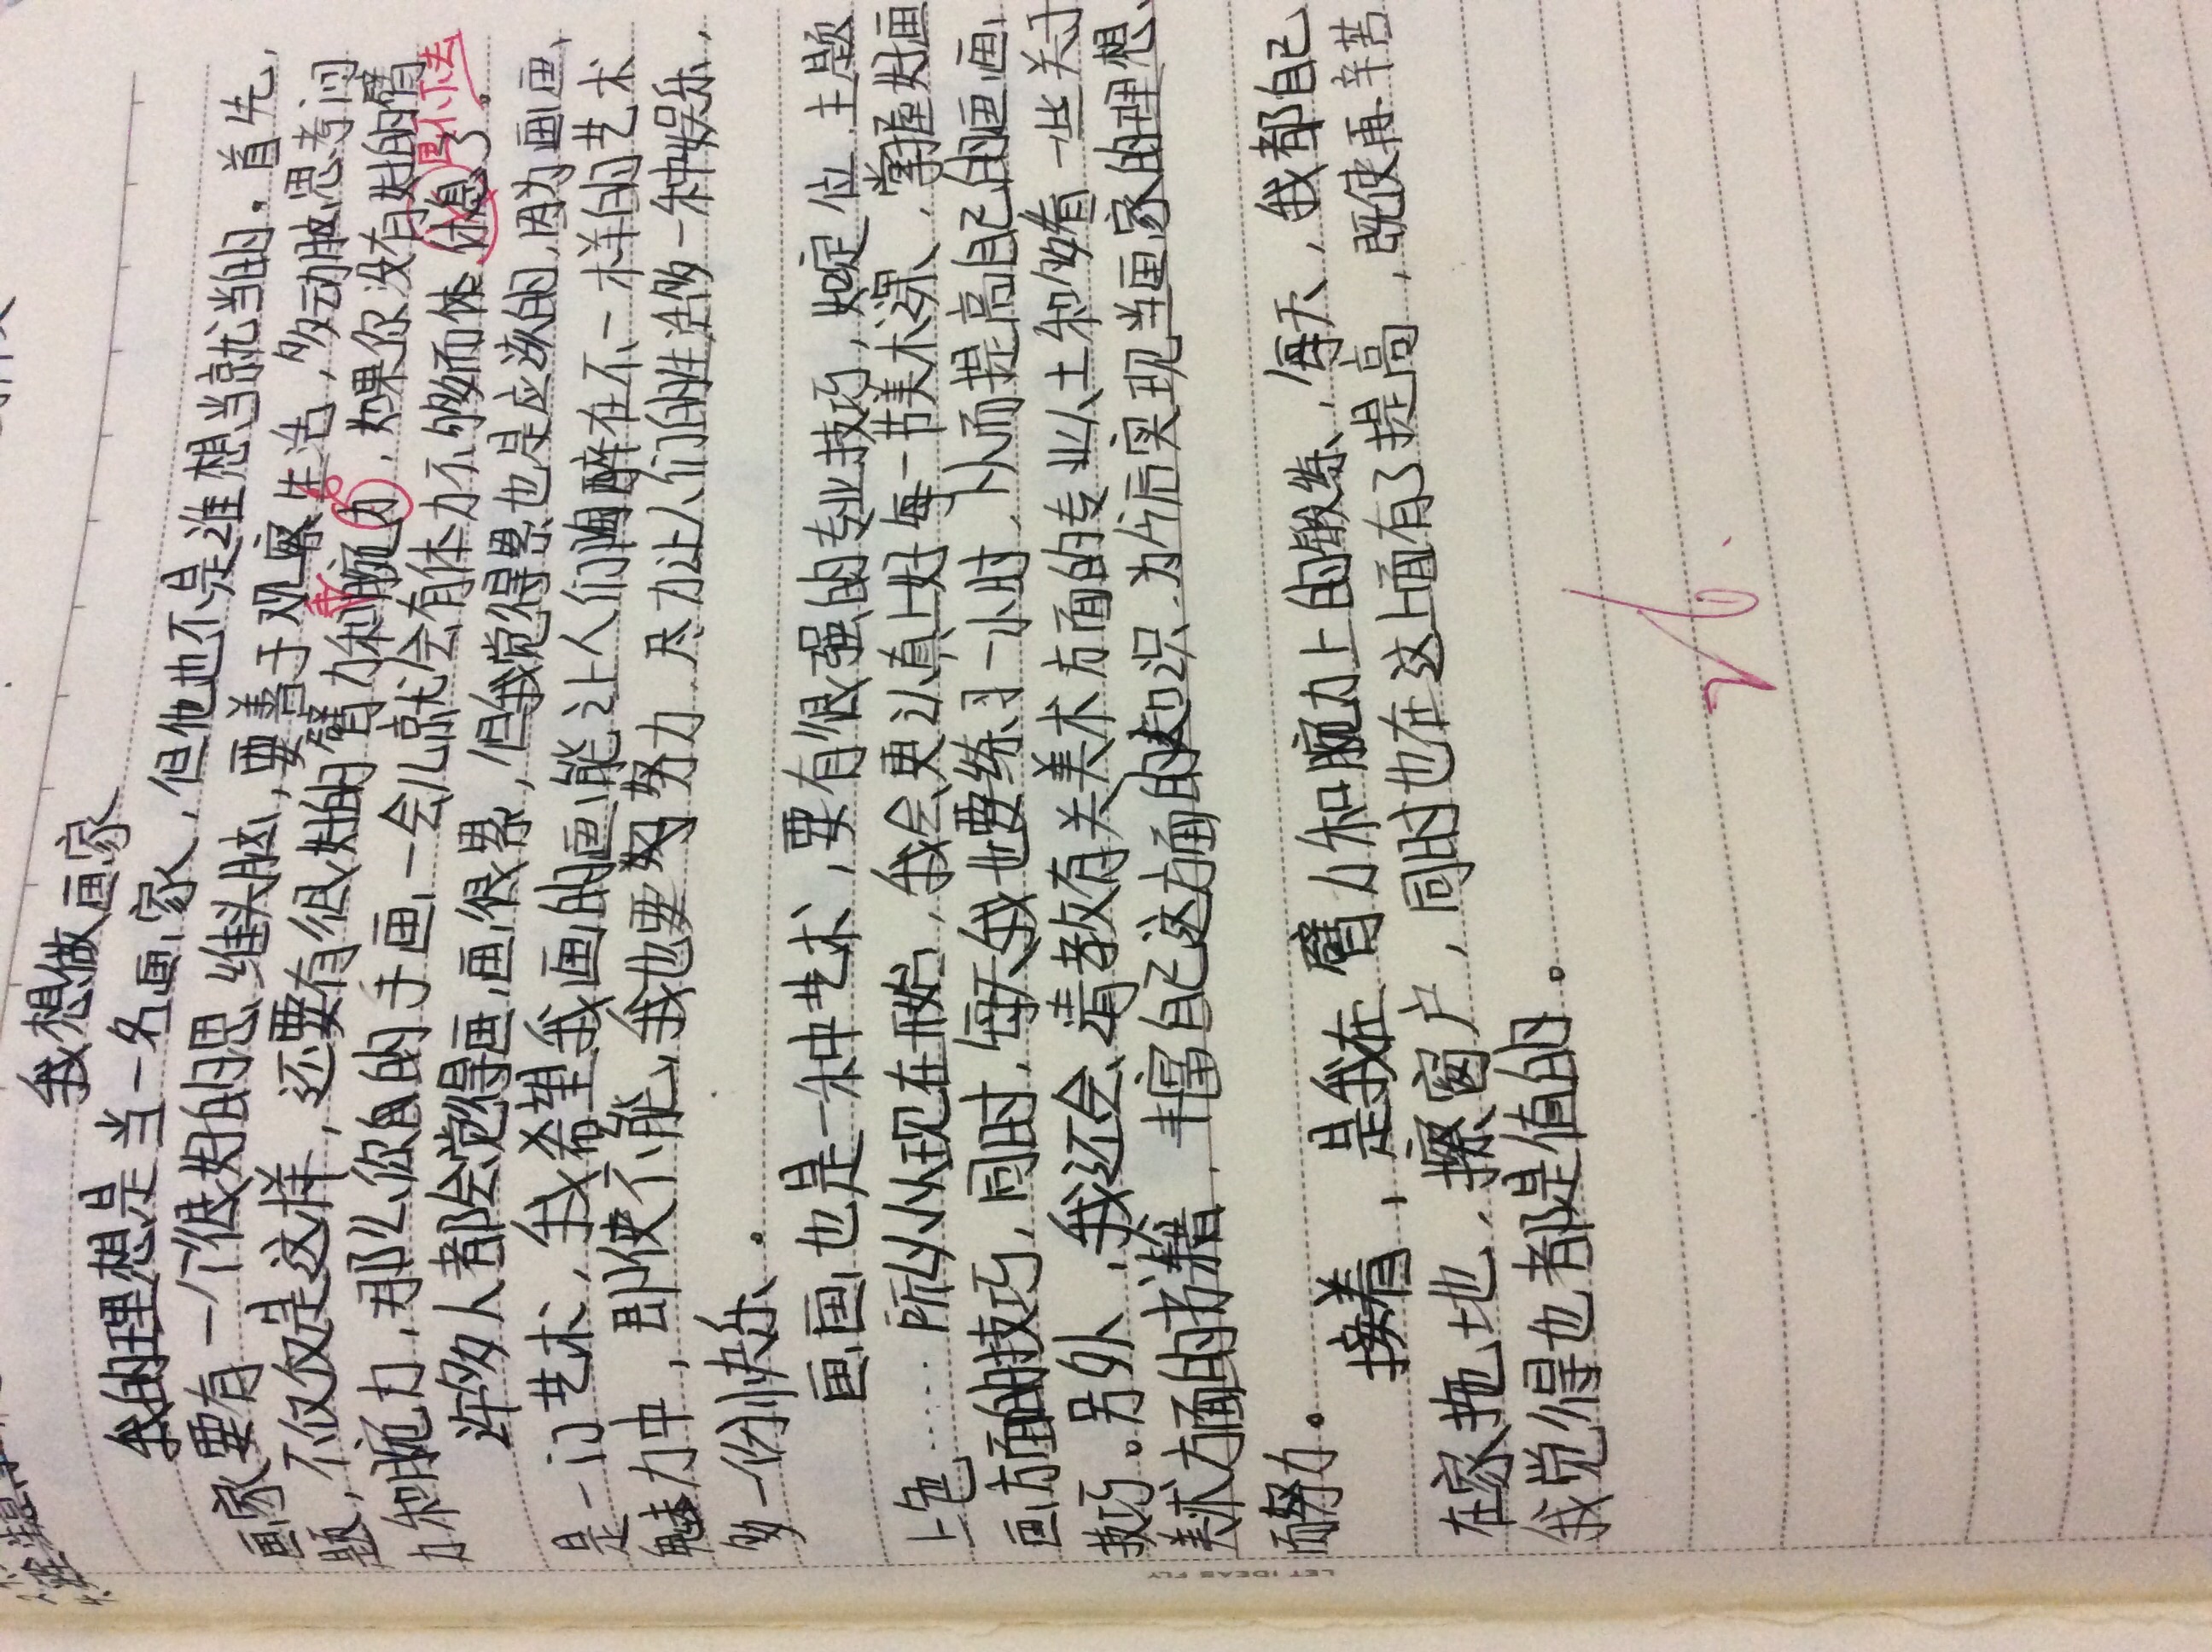 我想做画家
我的理想是当一名画家,但他也不是谁想当就当的。首先,
画家要有一个很好的思维头脑,要善于观察生活,多动脑思考问
题,不仅仅是这样,还要有很好的臂力和腕力,如果你没有好的臂
力和腕力,那么你的手画一会儿就会有体力不够而休息了。
坚持不下去
许多人都会觉得画画很累,但我觉得累也是应该的,因为画画
是一门艺术,我希望我画的画能让人们陶醉在不一样的艺术
魅力中,即使不能,我也要努力,尽力让人们的生活多一种娱乐,
多一份快乐。
画画也是一种艺术,要有很强的专业技巧,如定位、主题
上色……所以从现在开始,我会更认真上好每一节美术课、掌握好画
画方面的技巧,同时,每天我也要练习一小时,从而提高自己的画画
技巧。另外,我还会请教有关美术方面的专业人士和多看一些关于
美术方面的书籍,丰富自己这方面的知识,为今后实现当画家的理想
而努力。
接着,是我在臂力和腕力上的锻练,每天,我都自己
在家拖地、擦窗户,同时也在这上面有了提高,既使再辛苦
我觉得也都是值的。
LET IDEAS FLY